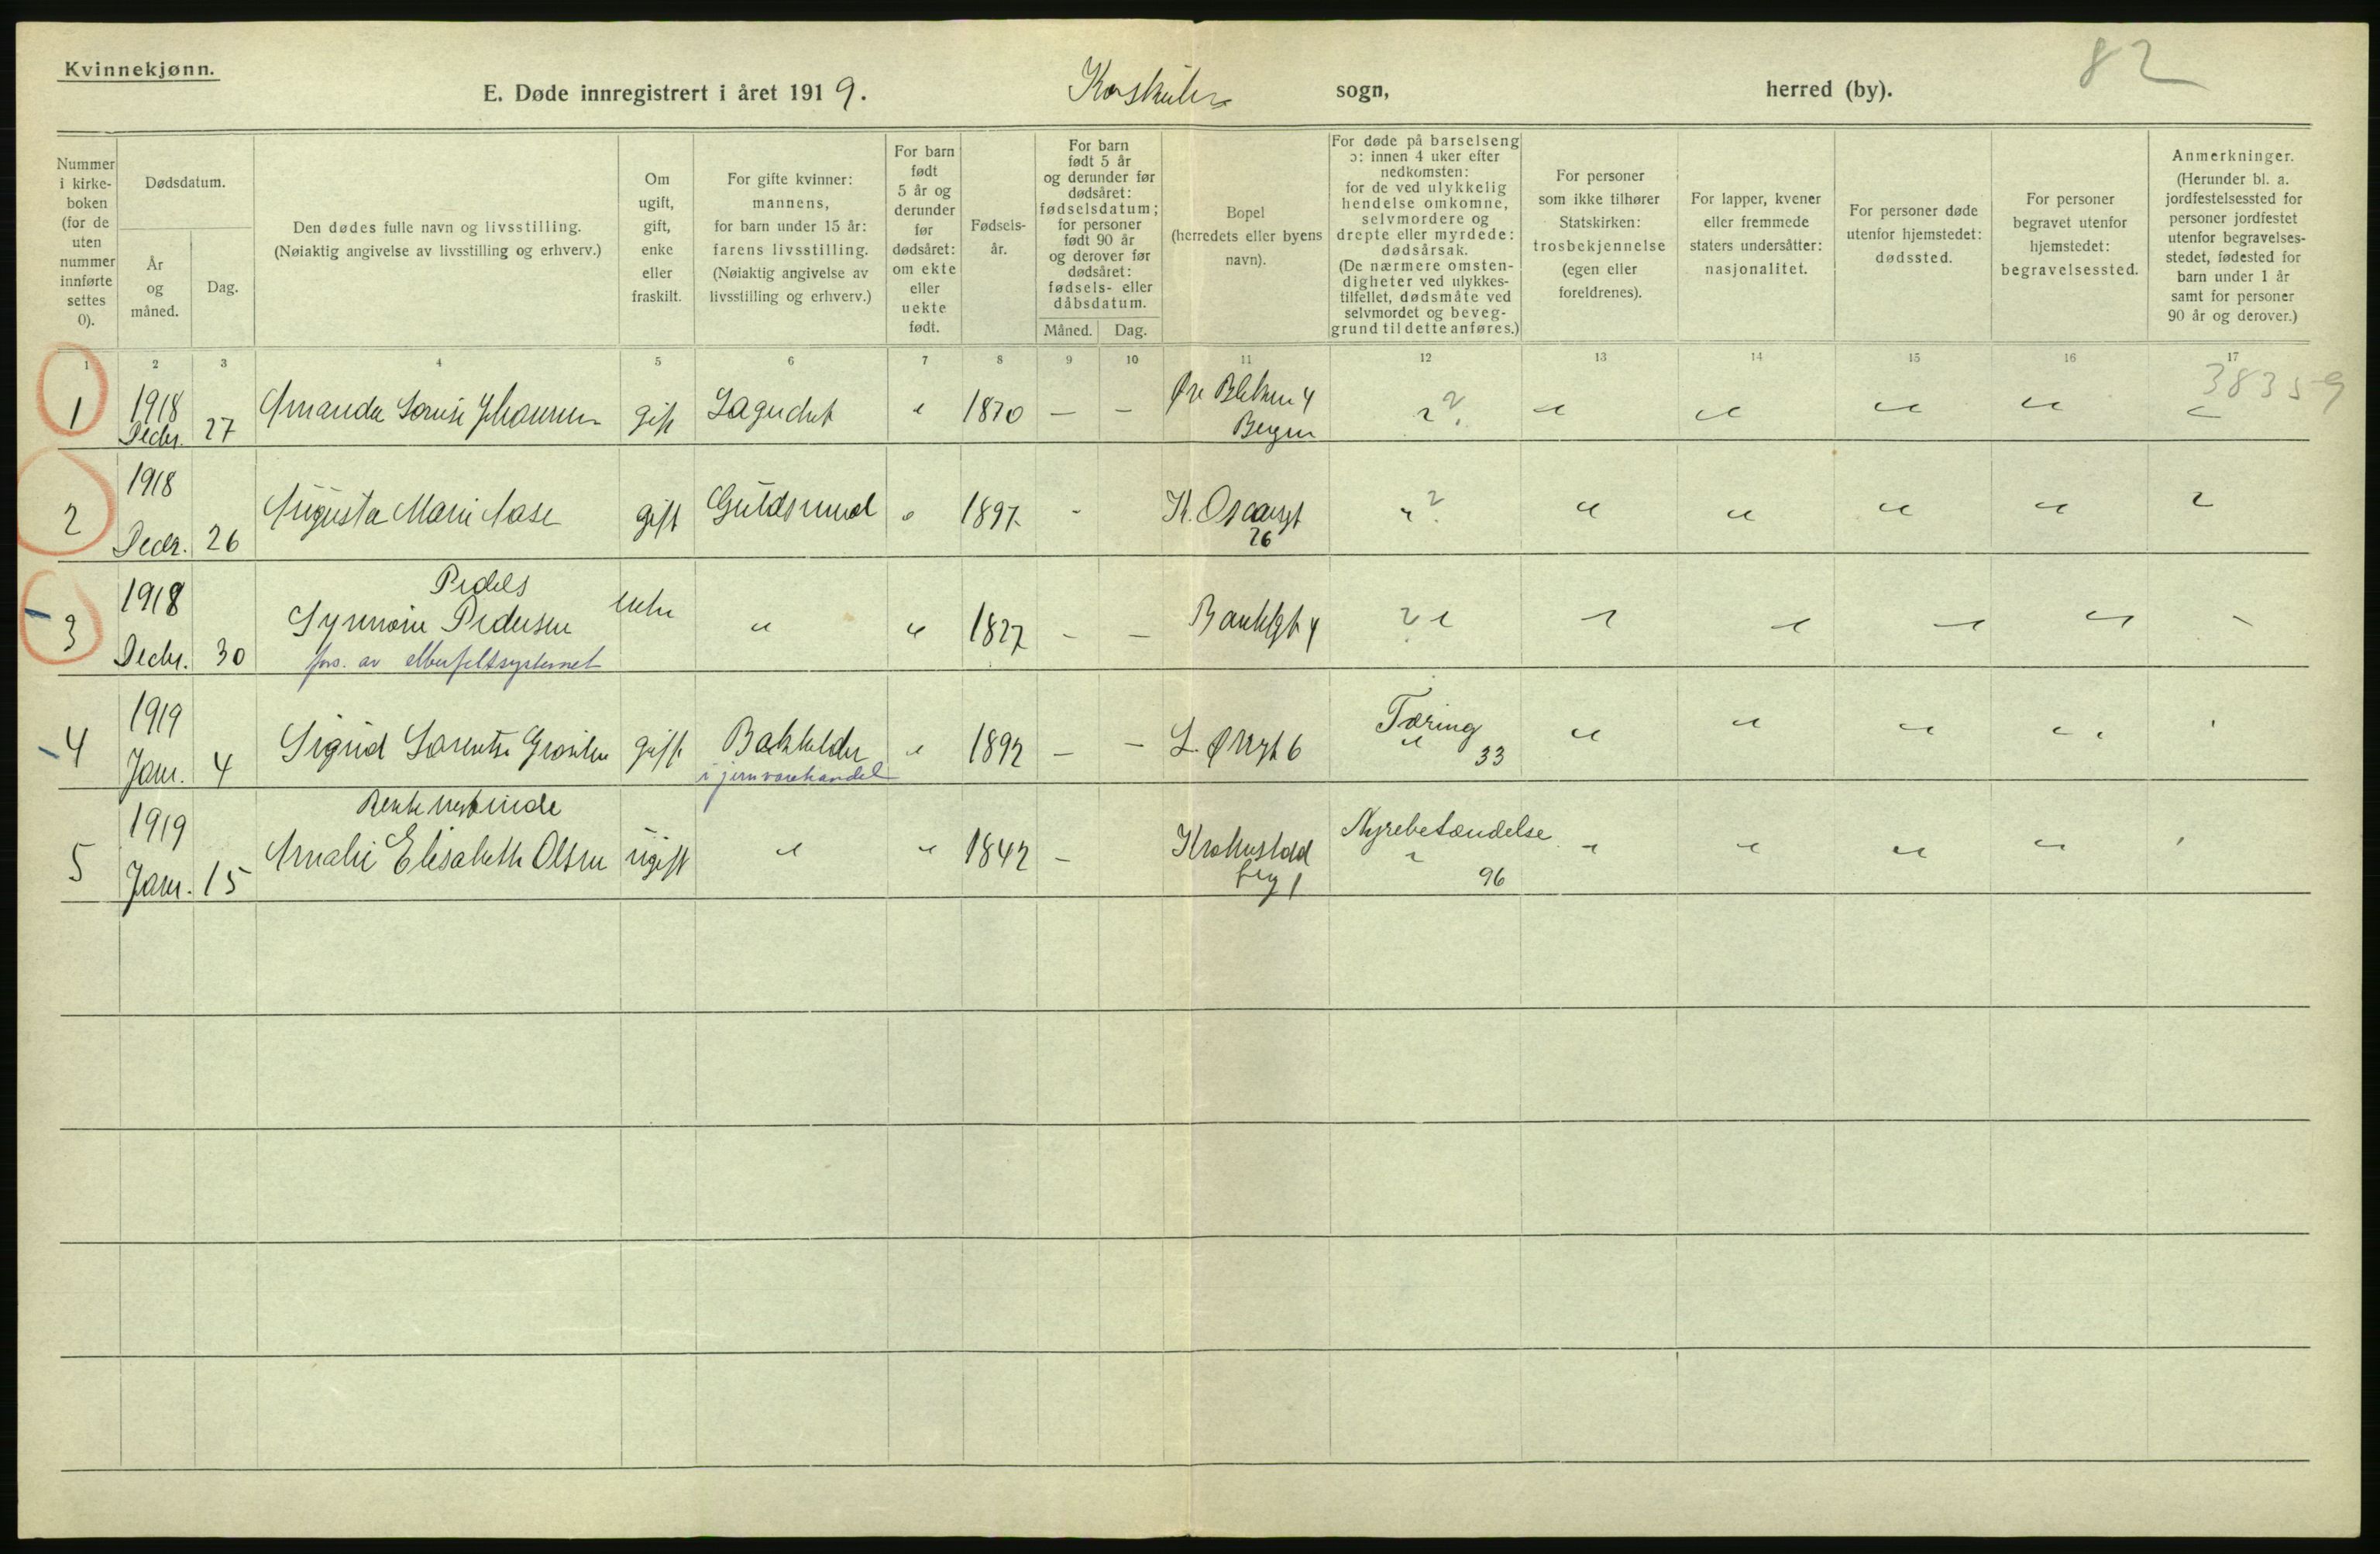 Kvinnekjønn.
82
E. Døde innregistrert i året 1919. Korskirkens sogn, herred (by).
Nummer i kirke-boken (for de uten nummer innførte settes 0).
Dødsdatum.
År og måned.
Dag.
Den dødes fulle navn og livsstilling.
(Nøiaktig angivelse av livsstilling og erhverv.)
Om ugift, gift, enke eller fraskilt.
For gifte kvinner: mannens, for barn under 15 år: farens livsstilling.
(Nøiaktig angivelse av livsstilling og erhverv.)
For barn født 5 år og derunder før dødsåret: om ekte eller uekte født.
Fødsels-år.
For barn født 5 år og derunder før dødsåret: fødselsdatum; for personer født 90 år og derover før dødsåret: fødsels- eller dåbsdatum.
Måned. Dag.
Bopel (herredets eller byens navn).
For døde på barselseng ɔ: innen 4 uker efter nedkomsten: for de ved ulykkelig hendelse omkomne, selvmordere og drepte eller myrdede: dødsårsak.
(De nærmere omsten-digheter ved ulykkes-tilfellet, dødsmåte ved selvmordet og beveg-grund til dette anføres.)
For personer som ikke tilhører Statskirken: trosbekjennelse (egen eller foreldrenes).
For lapper, kvener eller fremmede staters undersåtter: nasjonalitet.
For personer døde utenfor hjemstedet: dødssted.
For personer begravet utenfor hjemstedet: begravelsessted.
Anmerkninger.
(Herunder bl. a. jordfestelsessted for personer jordfestet utenfor begravelses-stedet, fødested for barn under 1 år samt for personer 90 år og derover.)
1 2 3 4 5 6 7 8 9 10 11 12 13 14 15 16 17
38359
1 1918 Decbr. 27 Amanda Lovise Johansen gift " 1870 — — Øre Blekev 4 Bergen " ? " " " " "
2 1918 Decbr. 26 Augusta Marie Aase gift Guldsmed " 1897 - K. Oscarsgt 26 " ? " " " " "
Pedels
3 1918 Decbr. 30 Synnøve Pedersen enke " " 1827 — — 4 ? " " " " " "
fors. av elberfeltsystemet
4 1919 Jan. 4 Sigrid gift Bokholder " 1892 — — L. Øvregt 6 Tæring " " " " " "
i jernvarehandel
33
5 1919 Jan. 15 Amalie Elisabeth Olsen ugift " " 1842 — Krohnstad Nyrebetændelse " " " " "
1 " 96